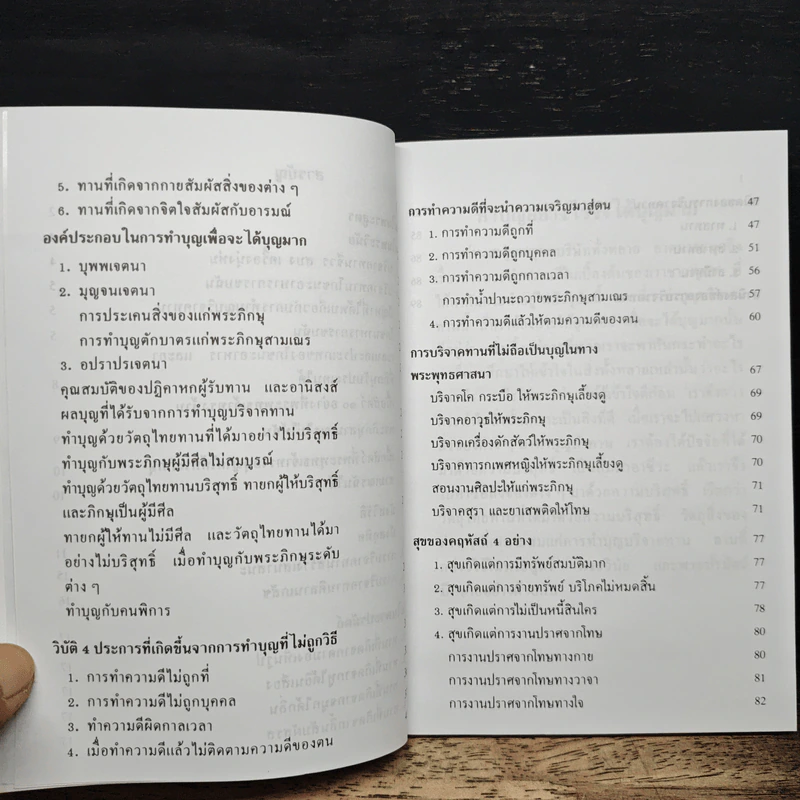 5. ทานที่เกิดจากกายสัมผัสสิ่งของต่าง ๆ
6. ทานที่เกิดจากจิตใจสัมผัสกับอารมณ์
องค์ประกอบในการทำบุญเพื่อจะได้บุญมาก
1. บุพพเจตนา
2. มุญจนเจตนา
การประเคนสิ่งของแก่พระภิกษุ
การทำบุญตักบาตรแก่พระภิกษุสามเณร
3. อปราปรเจตนา
คุณสมบัติของปฏิคาหกผู้รับทาน และอานิสงส์
ผลบุญที่ได้รับจากการทำบุญบริจาคทาน
ทำบุญด้วยวัตถุไทยทานที่ได้มาอย่างไม่บริสุทธิ์
ทำบุญกับพระภิกษุผู้มีศีลไม่สมบูรณ์
ทำบุญด้วยวัตถุไทยทานบริสุทธิ์ ทายกผู้ให้บริสุทธิ์
และภิกษุเป็นผู้มีศีล
ทายกผู้ให้ทานไม่มีศีล และวัตถุไทยทานได้มา
อย่างไม่บริสุทธิ์ เมื่อทำบุญกับพระภิกษุระดับ
ต่าง ๆ
ทำบุญกับคนพิการ
วิบัติ 4 ประการที่เกิดขึ้นจากการทำบุญที่ไม่ถูกวิธี
1. การทำความดีไม่ถูกที่
2. การทำความดีไม่ถูกบุคคล
3. ทำความดีผิดกาลเวลา
4. เมื่อทำความดีแล้วไม่ติดตามความดีของตน
การทำความดีที่จะนำความเจริญมาสู่ตน 47
1. การทำความดีถูกที่ 47
2. การทำความดีถูกบุคคล 51
3. การทำความดีถูกกาลเวลา 56
การทำน้ำปานะถวายพระภิกษุสามเณร 57
4. การทำความดีแล้วให้ตามความดีของตน 60
การบริจาคทานที่ไม่ถือเป็นบุญในทาง
พระพุทธศาสนา 67
บริจาคโค กระบือ ให้พระภิกษุเลี้ยงดู 69
บริจาคอาวุธให้พระภิกษุ 69
บริจาคเครื่องดักสัตว์ให้พระภิกษุ 70
บริจาคทารกเพศหญิงให้พระภิกษุเลี้ยงดู 70
สอนงานศิลปะให้แก่พระภิกษุ 71
บริจาคสุรา และยาเสพติดให้โทษ 71
สุขของคฤหัสถ์ 4 อย่าง 77
1. สุขเกิดแต่การมีทรัพย์สมบัติมาก 77
2. สุขเกิดแต่การจ่ายทรัพย์ บริโภคไม่หมดสิ้น 77
3. สุขเกิดแต่การไม่เป็นหนี้สินใคร 78
4. สุขเกิดแต่การงานปราศจากโทษ 80
การงานปราศจากโทษทางกาย 80
การงานปราศจากโทษทางวาจา 81
การงานปราศจากโทษทางใจ 82